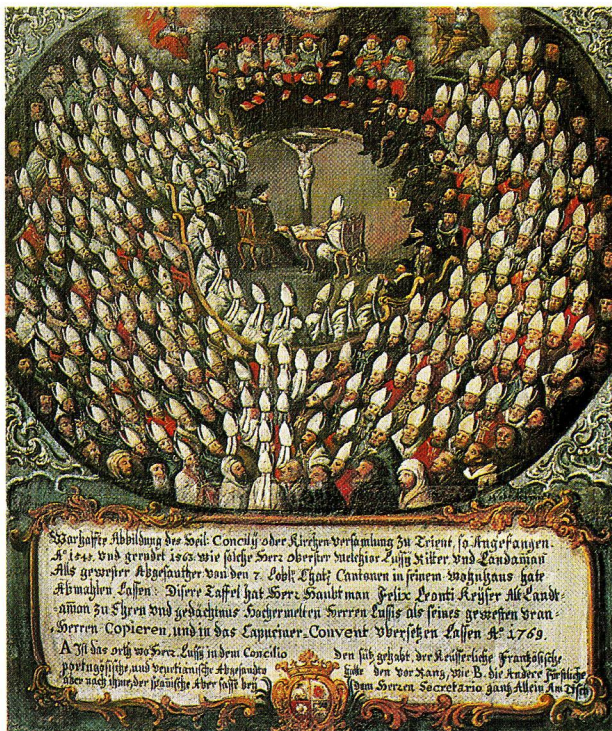 Warhaffte Abbildung des Heil: Concilÿ oder Kirchen versamlung Zu Trient, so Angefangen.
Aº 1545. Vnd geendet 1563. wie solche Herr Oberster Melchior Lussÿ Ritter Vnd Landaman
Als gewester Abgesanther von den 7. Lobl: Chatl: Cantonen in seinem wohnhaus hate
Abmahlen Lassen: Disere Taffel hat Herr Haubtman Felix Leonti Keÿser Alt Landt-
aman zu Ehren vnd gedächtnus Hochermelten Herren Lussis als seines gewesten vran-
Herren Copieren, und in das Capuciner-Convent vbersetzen Lassen Aº 1769.
A Ist das orth wo Herr. Lussÿ in dem Concilio den sütz gehabt, der Keÿserliche Französische
portugösische, und venetianische Abgesandte hatte den vor Rang, wie B. die Andere Fürstliche
aber nach ihme, der spanische Aber sasse beÿ dem Herren Secretario gantz Allein Am Tisch